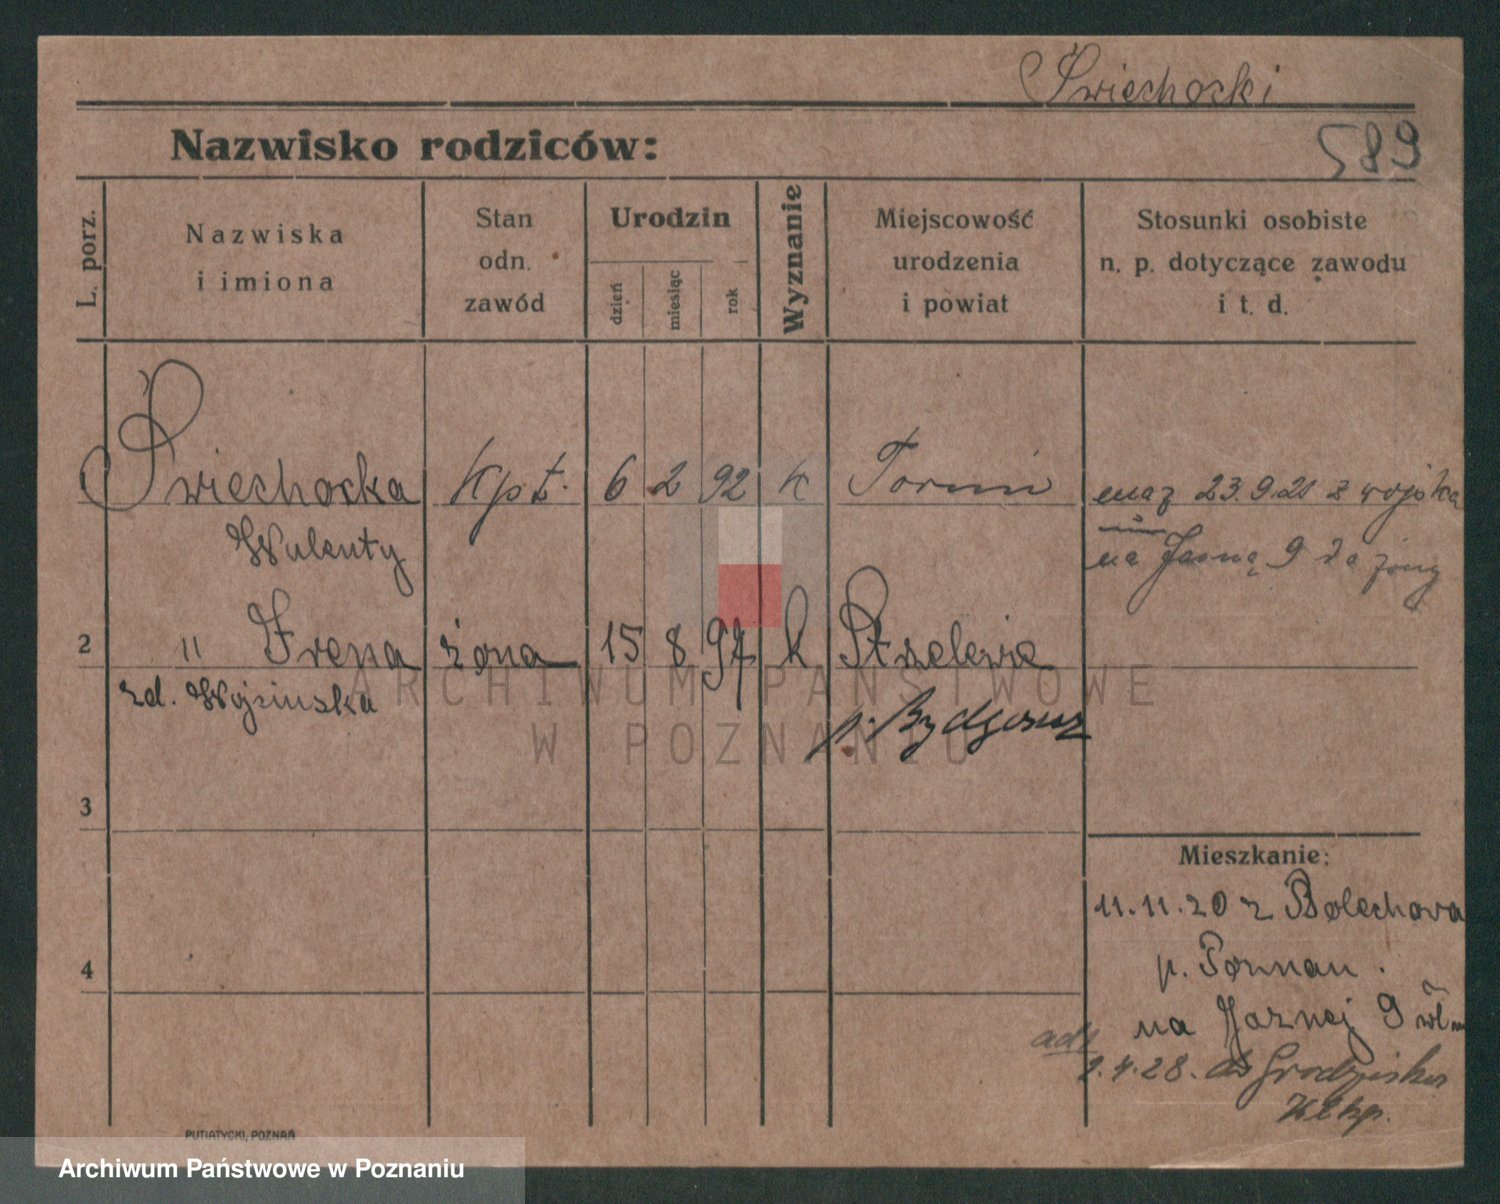 Świechocki
589
Nazwisko rodziców:
L. porz.
Nazwiska
i imiona
Stan
odn.
zawód
Urodzin
dzień
miesiąc
rok
Wyznanie
Miejscowość
urodzenia
i powiat
Stosunki osobiste
n. p. dotyczące zawodu
i t. d.
Świechocka Kpt. 6 2 92 k Toruń
Walenty
mąż 23.9.21 z wojska
na Jasną 9 za żoną
2 " Irena żona 15 8 97 k Strzelewie
zd. Wojcinska
p. Bydgoszcz
3
4
Mieszkanie:
11.11.20 z Bolechowa
p. Poznan.
na Jasnej 9
2.4.28. do Grodziska
Wlkp.
ARCHIWUM PAŃSTWOWE
W POZNANIU
PUTIATYCKI, POZNAŃ
Archiwum Państwowe w Poznaniu